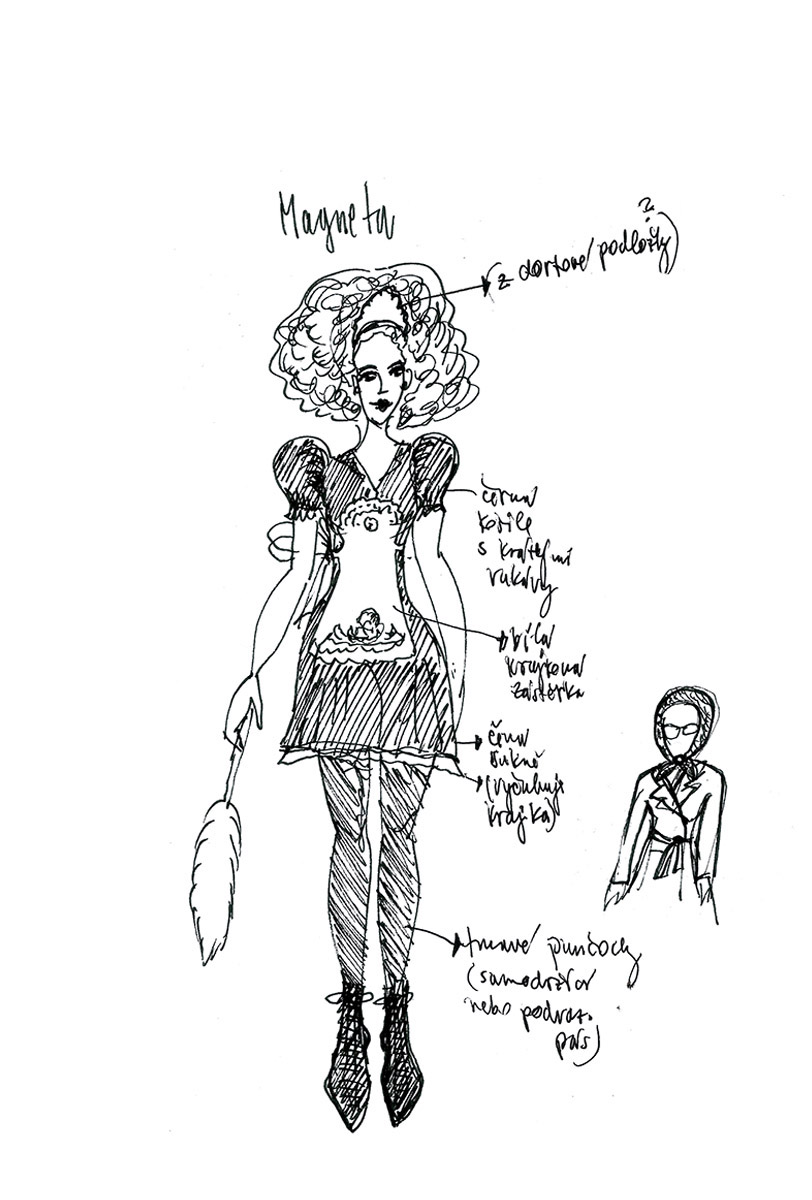 Magneta
(z dortové podložky)
?
černá
košile
s krátkými
rukávy
bílá
krajková
zástěrka
černá
sukně
(vyčuhuje
krajka)
tmavé punčochy
(samodržící
nebo podvaz.
pás)